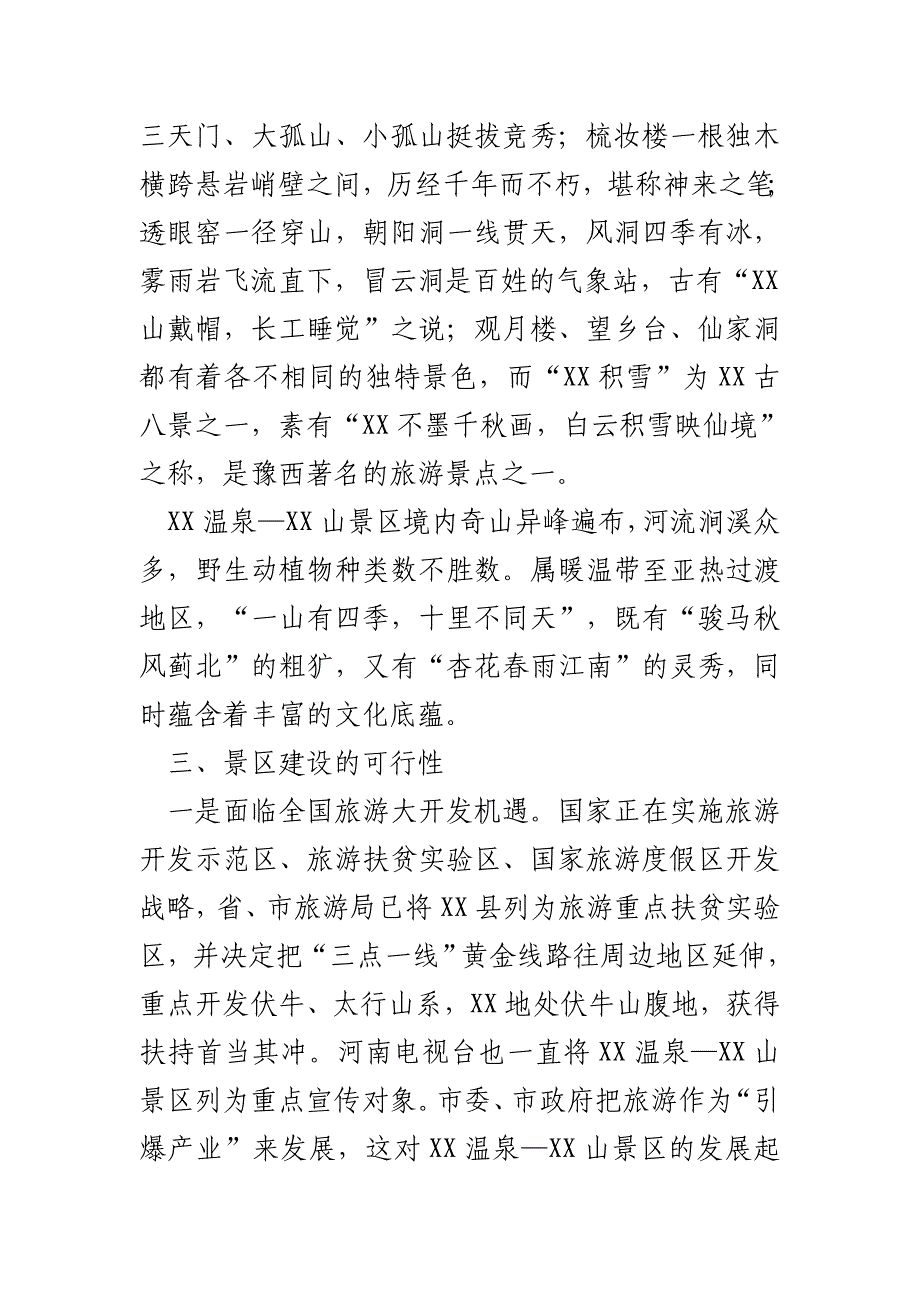 三天门、大孤山、小孤山挺拔竞秀；梳妆楼一根独木
横跨悬岩峭壁之间，历经千年而不朽，堪称神来之笔；
透眼窑一径穿山，朝阳洞一线贯天，风洞四季有冰，
雾雨岩飞流直下，冒云洞是百姓的气象站，古有“XX
山戴帽，长工睡觉”之说；观月楼、望乡台、仙家洞
都有着各不相同的独特景色，而“XX 积雪”为 XX 古
八景之一，素有“XX 不墨千秋画，白云积雪映仙境”
之称，是豫西著名的旅游景点之一。
XX 温泉—XX 山景区境内奇山异峰遍布，河流涧溪众
多，野生动植物种类数不胜数。属暖温带至亚热过渡
地区，“一山有四季，十里不同天”，既有“骏马秋
风蓟北”的粗犷，又有“杏花春雨江南”的灵秀，同
时蕴含着丰富的文化底蕴。
三、景区建设的可行性
一是面临全国旅游大开发机遇。国家正在实施旅游
开发示范区、旅游扶贫实验区、国家旅游度假区开发
战略，省、市旅游局已将 XX 县列为旅游重点扶贫实验
区，并决定把“三点一线”黄金线路往周边地区延伸，
重点开发伏牛、太行山系，XX 地处伏牛山腹地，获得
扶持首当其冲。河南电视台也一直将 XX 温泉—XX 山
景区列为重点宣传对象。市委、市政府把旅游作为“引
爆产业”来发展，这对 XX 温泉—XX 山景区的发展起